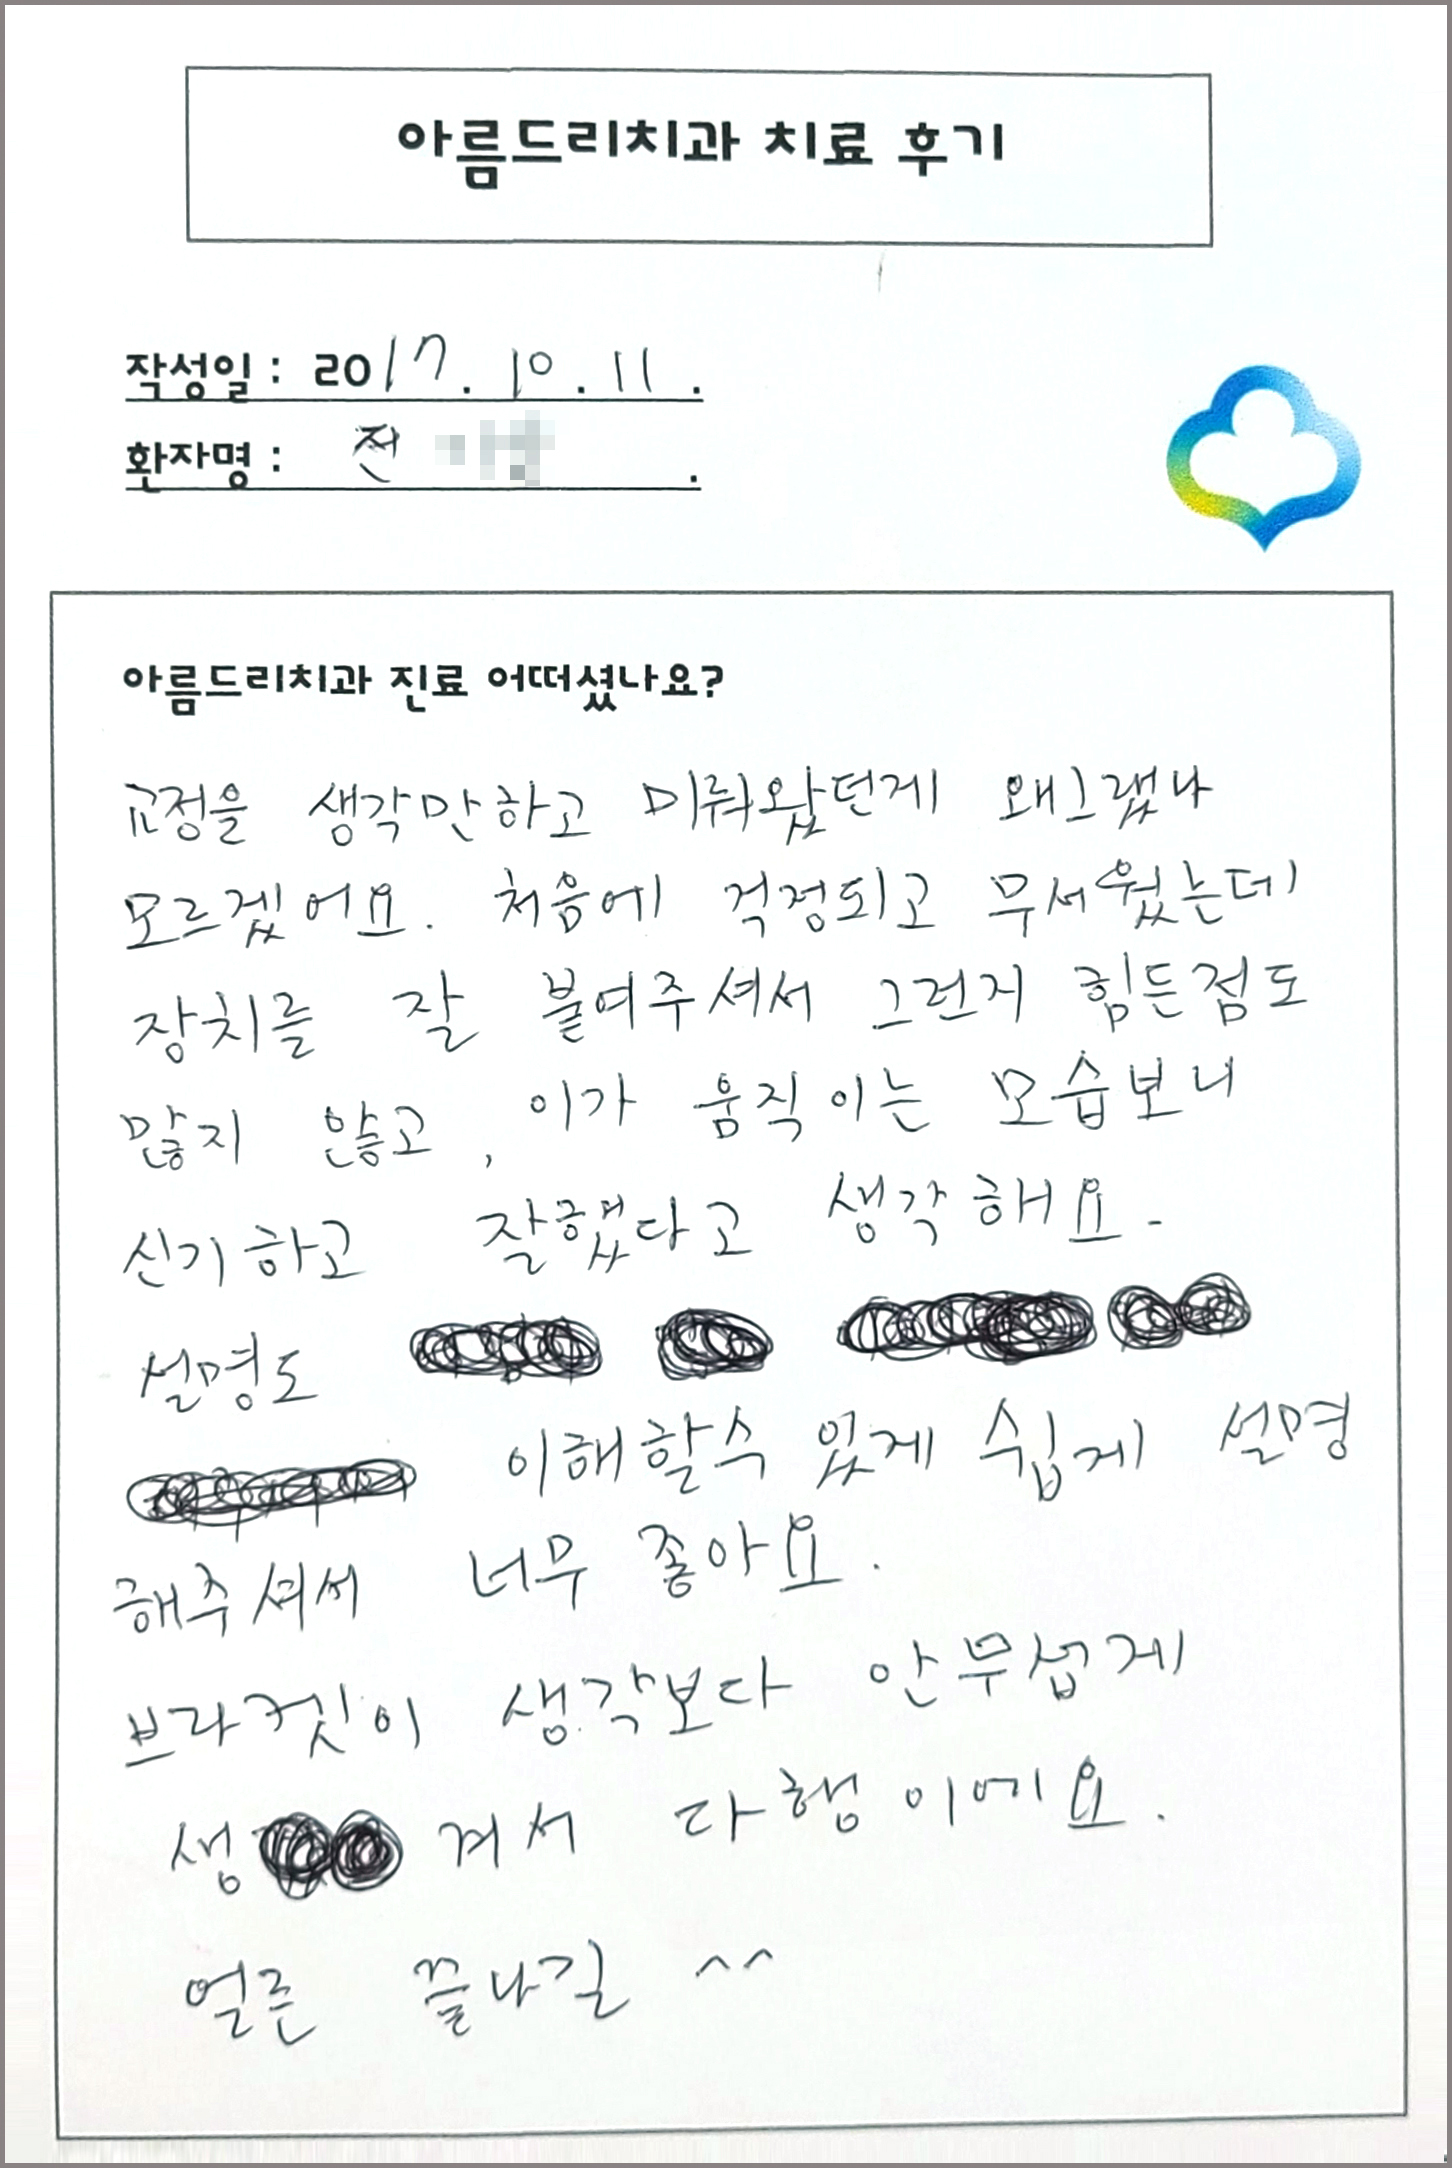 아름드리치과 치료 후기
작성일 : 2017. 10. 11.
환자명 : 전 .
아름드리치과 진료 어떠셨나요?
교정을 생각만하고 미뤄왔던게 왜그랬나
모르겠어요. 처음에 걱정되고 무서웠는데
장치를 잘 붙여주셔서 그런지 힘든점도
많지 않고, 이가 움직이는 모습보니
신기하고 잘했다고 생각해요.
설명도
이해할수 있게 쉽게 설명
해주셔서 너무 좋아요.
브라켓이 생각보다 안무섭게
생 겨서 다행이에요.
얼른 끝나길 ^^